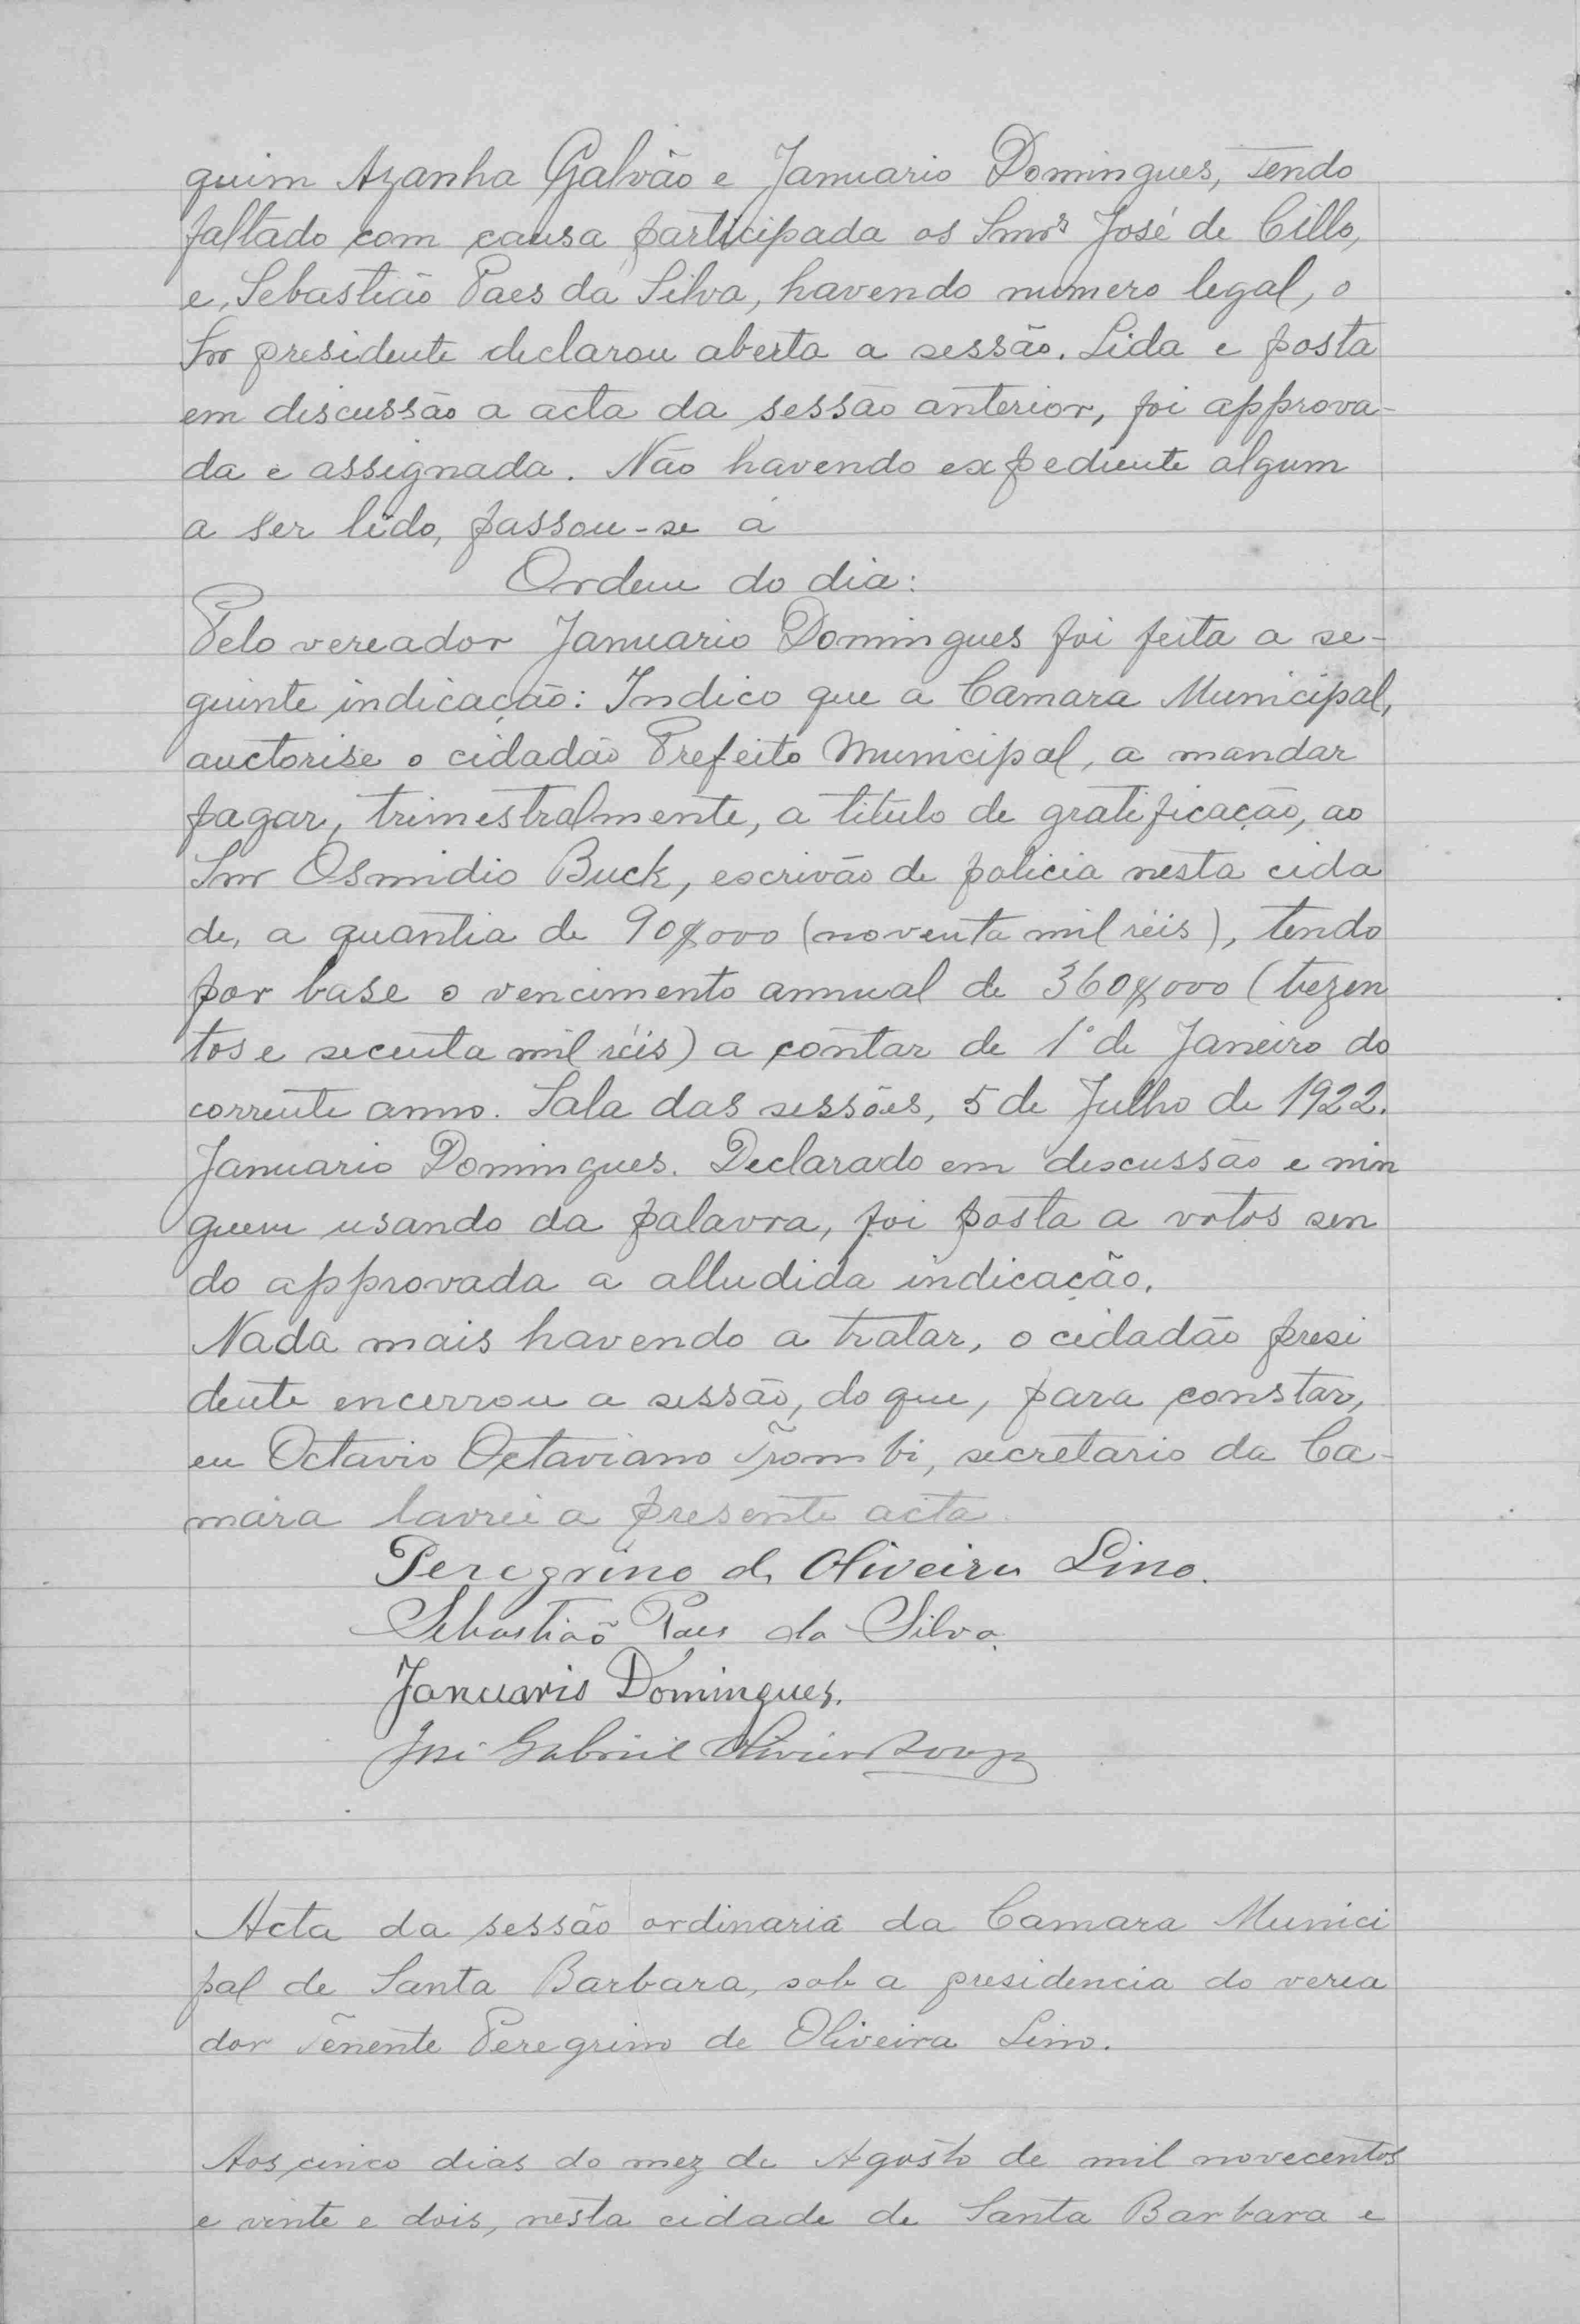 quim Azanha Galvão e Januario Domingues, tendo
faltado com causa participada os Smrs José de Cillo,
e Sebastião Paes da Silva, havendo numero legal, o
Snr presidente declarou aberta a sessão. Lida e posta
em discussão a acta da sessão anterior, foi approva-
da e assignada. Não havendo expediente algum
a ser lido, passou-se á
Ordem do dia:
Pelo vereador Januario Domingues foi feita a se-
guinte indicação: Indico que a Camara Municipal,
auctorise o cidadão Prefeito Municipal, a mandar
pagar, trimestralmente, a titulo de gratificação, ao
Snr Osmidio Buck, escrivão de policia nesta cida
de, a quantia de 90$000 (noventa mil réis), tendo
por base o vencimento annual de 360$000 (trezen
tos e secenta mil réis) a contar de 1º de Janeiro do
corrente anno. Sala das sessões, 5 de Julho de 1922.
Januario Domingues. Declarado em discussão e nin
guem usando da palavra, foi posta a votos sen
do approvada a alludida indicação.
Nada mais havendo a tratar, o cidadão presi
dente encerrou a sessão, do que, para constar,
eu Octavio Octaviano Trombi, secretario da Ca-
mara lavrei a presente acta.
Peregrino de Oliveira Lino.
Sebastião Paes da Silva.
Januario Domingues.
José Gabriel Oliveira Souza
Acta da sessão ordinaria da Camara Munici
pal de Santa Barbara, sob a presidencia do verea
dor Tenente Peregrino de Oliveira Lino.
Aos cinco dias do mez de Agosto de mil novecentos
e vinte e dois, nesta cidade de Santa Barbara e